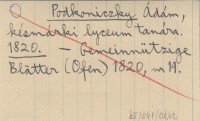 Podkoniczky Ádám,
késmárki lyceum tanára.
1820. — Gemeinnützige
Blätter (Ofen) 1820,